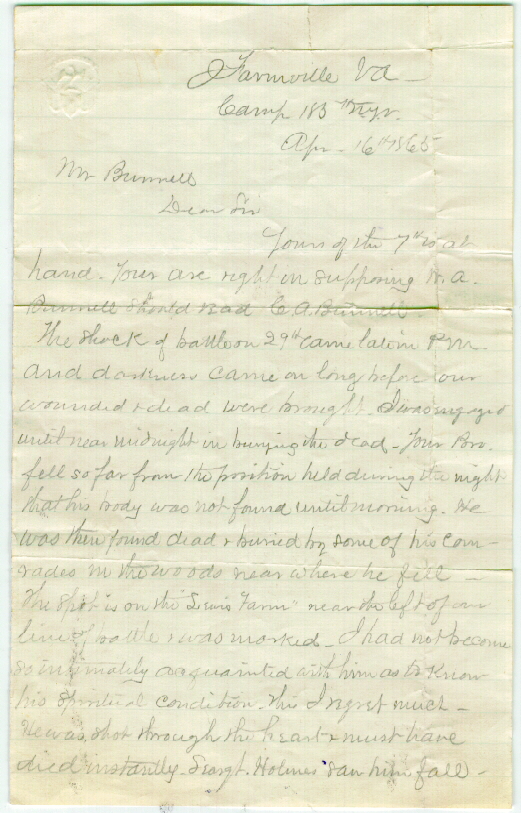 Farmville Va -
Camp 185th
Apr. 16th 1865
Mr Bunnell
Dear Sir
Yours of the 7th is at
hand. Your are right in supposing H. A.
Bunnell should read C. A. Bunnell.
The shock of battle on 29th came late in P.M.
and darkness came on long before our
wounded & dead were brought. I was engaged
until near midnight in burying the dead - Your Bro.
fell so far from the position held during the night
that his body was not found until morning. He
was then found dead & buried by some of his com-
rades in the woods near where he fell -
The spot is on the "Lewis Farm" near the left of our
line of battle & was marked - I had not become
so intimately acquainted with him as to know
his spiritual condition. This I regret much -
He was shot through the heart & must have
died instantly. Seargt. Holmes saw him fall -